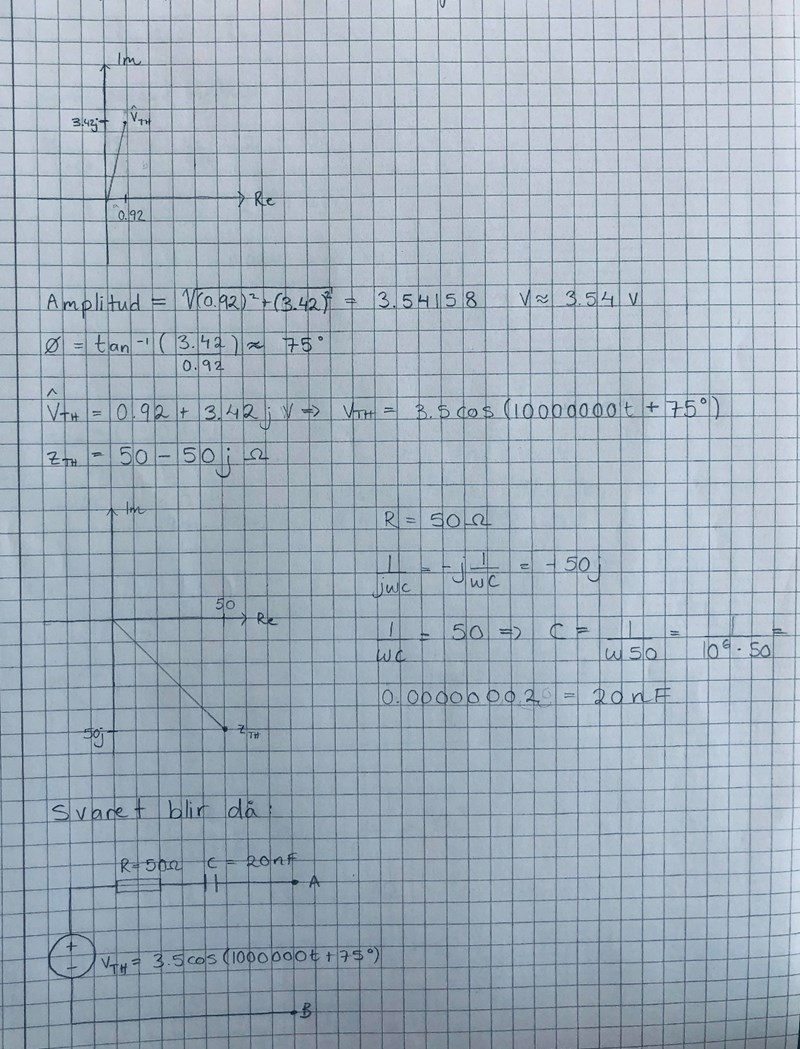 Im
3.42j
V̂TH
Re
0.92
Amplitud = √(0.92)²+(3.42)² = 3.54158 V ≈ 3.54 V
Ø = tan⁻¹ (3.42/0.92) ≈ 75°
V̂TH = 0.92 + 3.42j V => VTH = 3.5cos(10000000t + 75°)
ZTH = 50 - 50j Ω
Im
R = 50Ω
1/jwc = -j 1/wc = -50j
50
Re
1/wc = 50 => C = 1/w50 = 1/10⁶·50 =
0.00000002 = 20nF
50j
ZTH
Svaret blir då:
R=50Ω C = 20nF
A
+
-
VTH = 3.5cos(1000000t+75°)
B